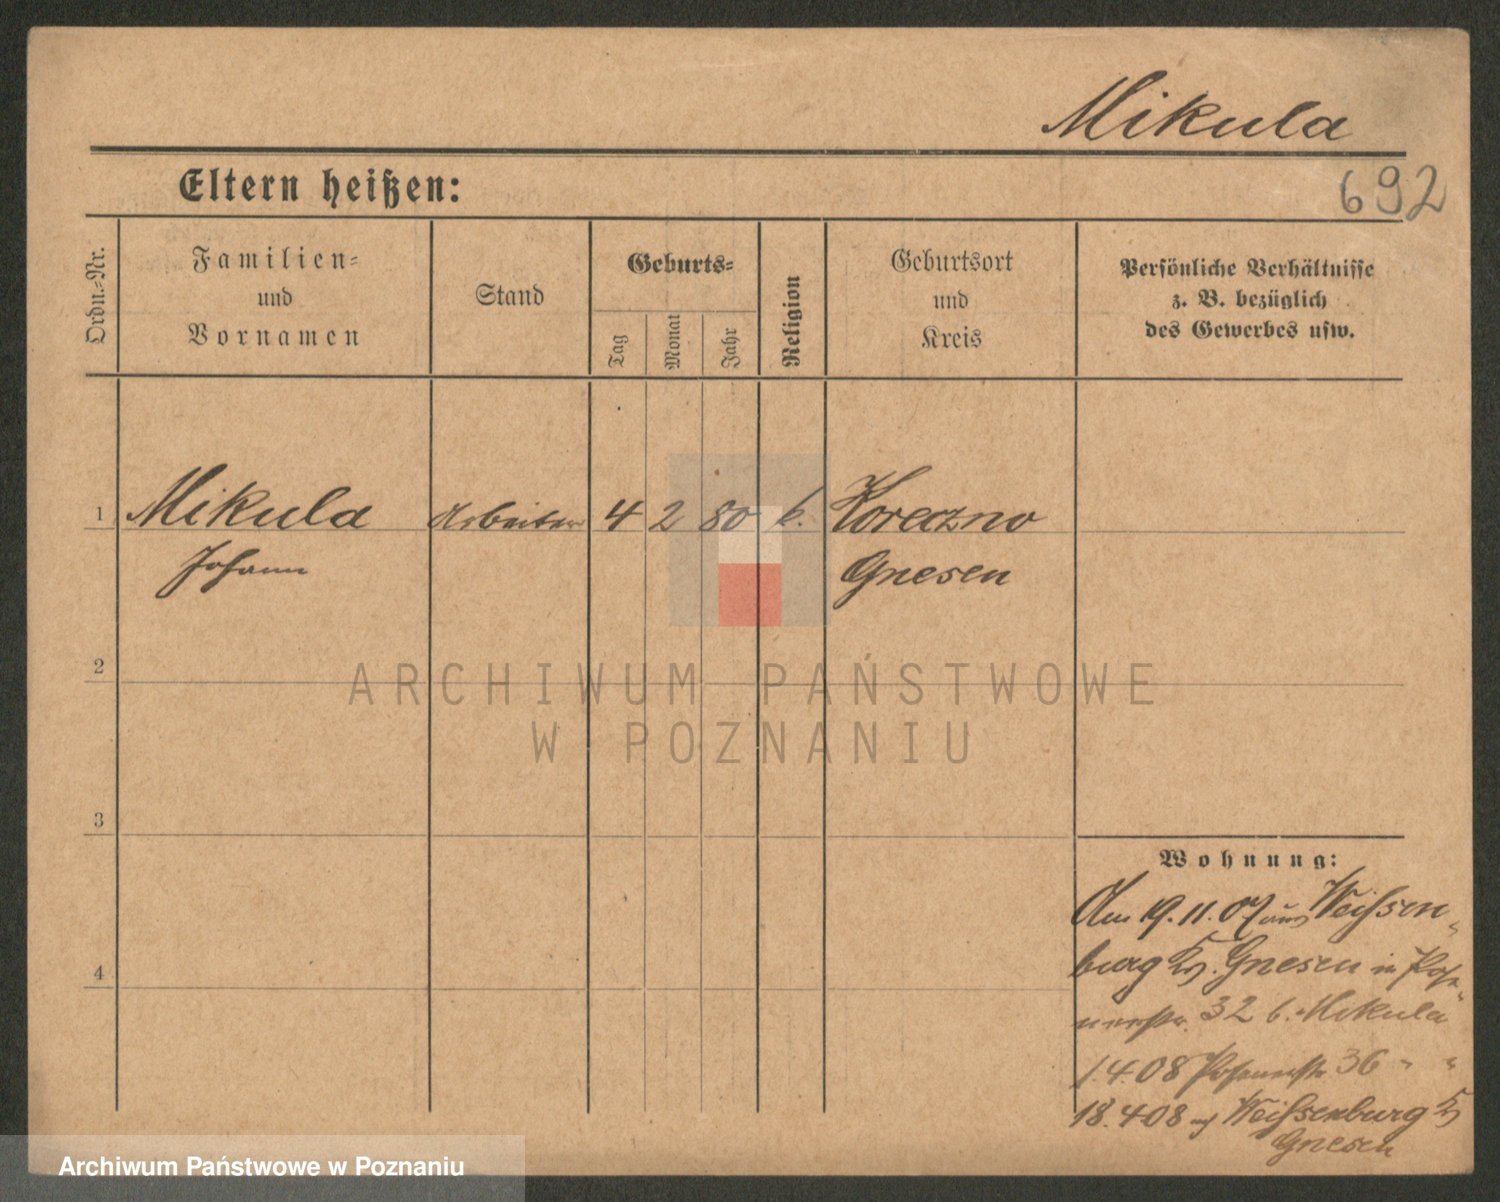 Mikula
Eltern heißen:
692
Ordn.-Nr.
Familien-
und
Vornamen
Stand
Geburts-
Tag
Monat
Jahr
Religion
Geburtsort
und
Kreis
Persönliche Verhältnisse
z. B. bezüglich
des Gewerbes usw.
1 Mikula Arbeiter 4 2 80 k. Koreczno
Johann Gnesen
2
ARCHIWUM PAŃSTWOWE
W POZNANIU
3
Wohnung:
Am 19.11.07 aus Weißen-
burg Kr. Gnesen in Pose-
nerstr. 32 b. Mikula
4
1.4.08 Posenerstr 36 " "
18.4.08 n/ Weißenburg Kr
Gnesen
Archiwum Państwowe w Poznaniu